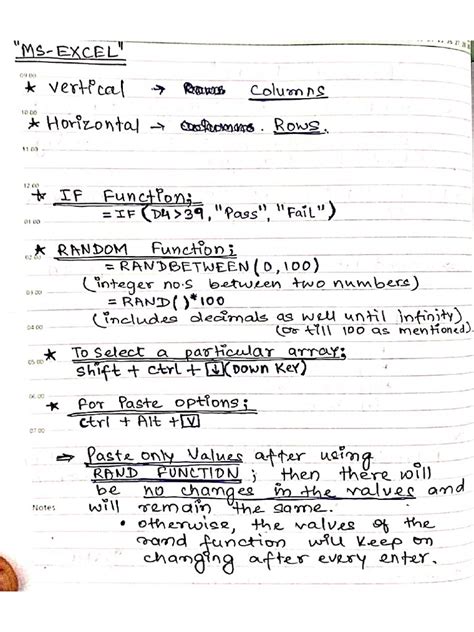 "MS-EXCEL"
09.00
* Vertical → Rows Columns
10.00
* Horizontal → Columns. Rows.
11.00
12.00
* IF Function;
= IF (D4>39, "Pass", "Fail")
01.00
* RANDOM Function;
02.00
= RANDBETWEEN (0,100)
(integer no.s between two numbers)
03.00
= RAND( )*100
(includes decimals as well until infinity)
04.00
(or till 100 as mentioned).
* To Select a particular array;
05.00
Shift + ctrl + ↓ (Down Key)
06.00
* For Paste options;
Ctrl + Alt + V
07.00
⇒ Paste only Values after using
RAND FUNCTION ; then there will
be no changes in the values and
Notes will remain the same.
• otherwise, the values of the
rand function will keep on
changing after every enter.